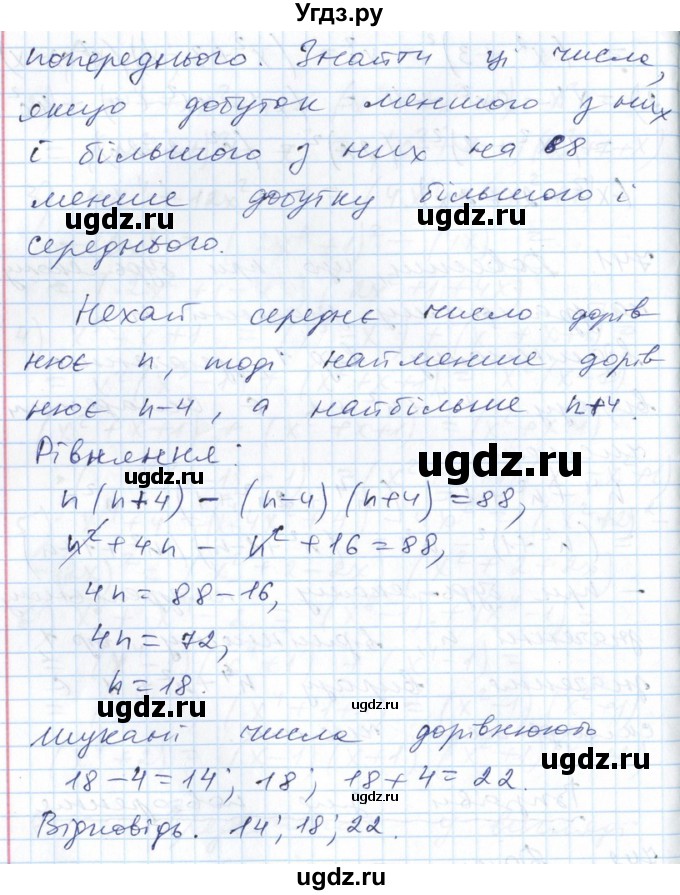 Угдз.ру
попереднього. Знайти ці числа,
якщо добуток меншого з них
і більшого з них на 88
менше добутку більшого і
ugdz.ru
ugdz.ru
середнього.
Нехай середнє число дорів
нює n, тоді найменше дорів
нює n-4, а найбільше n+4.
Рівняння:
ugdz.ru
ugdz.ru
n(n+4) - (n-4)(n+4) = 88,
n² + 4n - n² + 16 = 88,
4n = 88-16,
4n = 72,
n = 18.
ugdz.ru
ugdz.ru
Шукані числа дорівнюють
18-4=14; 18; 18+4=22.
ugdz.ru
ugdz.ru
Відповідь. 14; 18; 22.
ugdz.ru